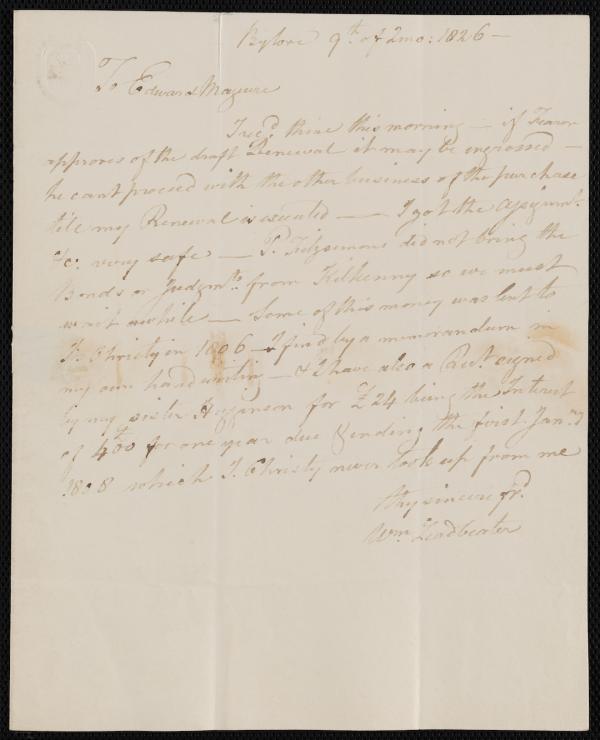 Bylore 9th of 2mo: 1826 —
To Edward Maguire
I recd. thine this morning — if Fearon
approves of the draft Renewal it may be ingrossed —
he cant proceed with the other business of the purchase
till my Renewal is executed — I got the Assignmts.
&c: very safe — P. Fitzsimons did not bring the
Bonds or Judgmts. from Kilkenny so we must
wait awhile — Some of this money was lent to
J. Christy in 1806 — I find by a memorandum in
my own handwriting — & I have also a Rect. signed
by my sister Higginson for £24 being the Interest
of 400 for one year due & ending the first Janry
1808 which J. Christy never took up from me
thy sincere frd.
Wm. Leadbeater